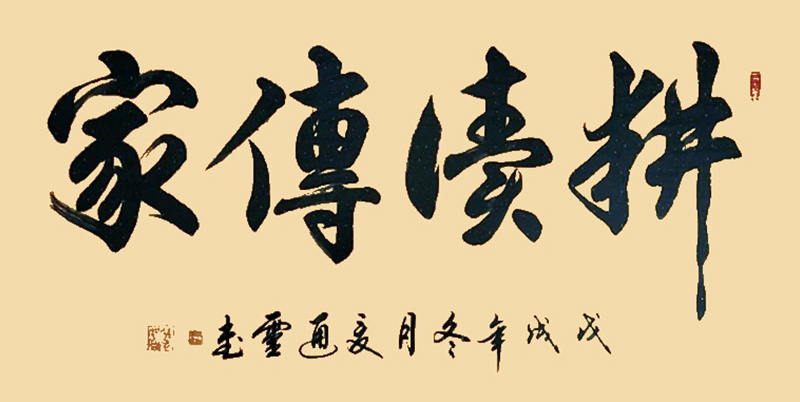 耕讀傳家
戊戌年冬月通書